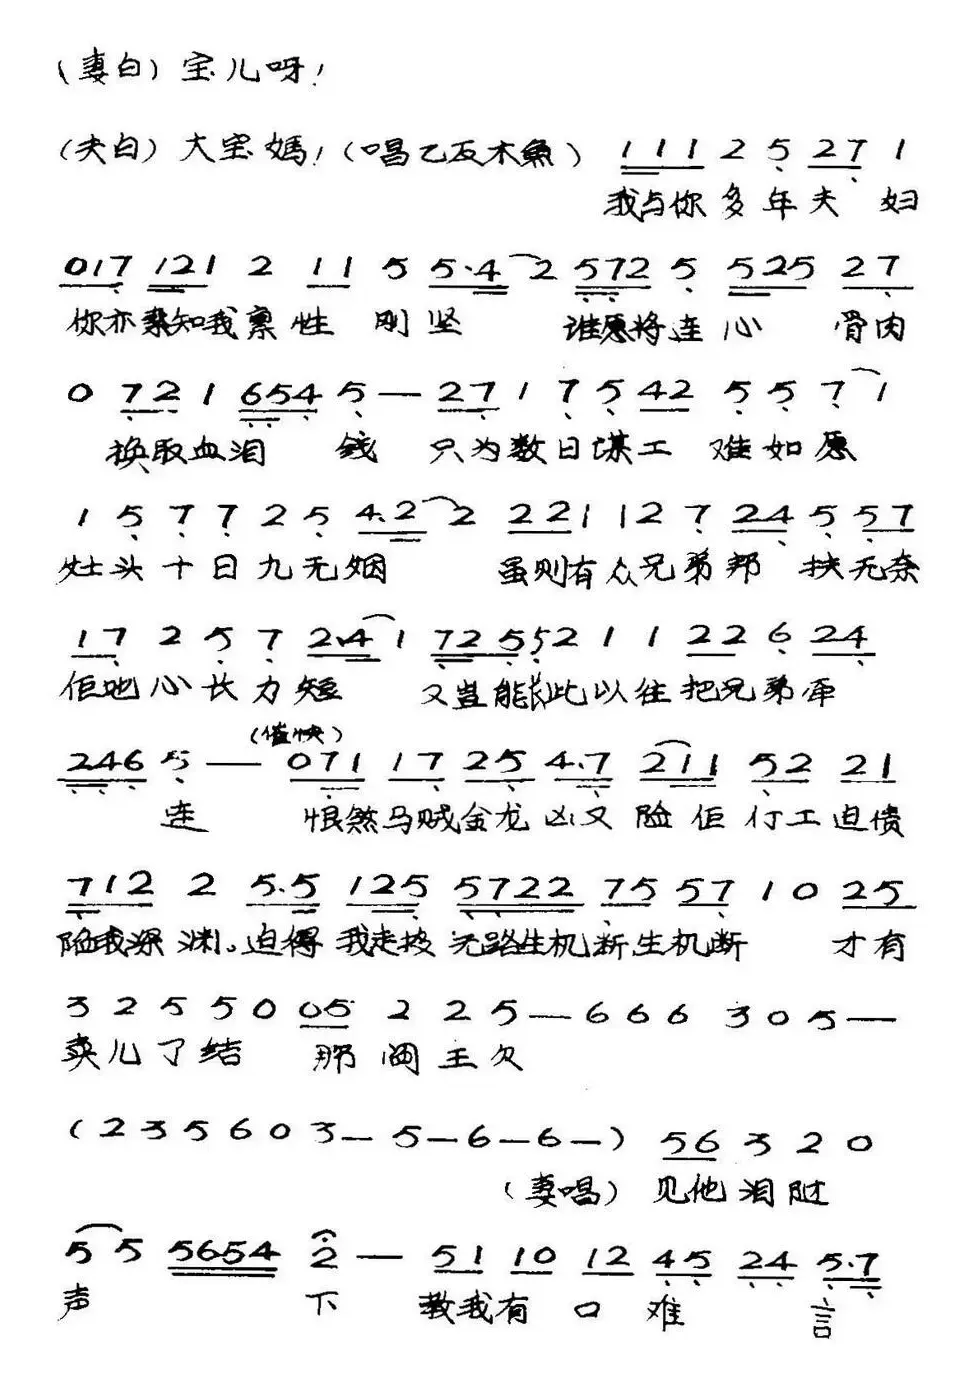 (妻白) 宝儿呀!
(夫白) 大宝媽!(唱乙反木魚) 1 1 1 2 5 2 7 1
我与你多年夫 妇
0 1 7 1 2 1 2 1 1 5 5·4 2 5 7 2 5 5 2 5 2 7
你亦素知我禀性 刚坚 谁愿将连心 骨肉
0 7 2 1 6 5 4 5 — 2 7 1 7 5 4 2 5 5 7 1
换取血泪 钱 只为数日谋工 难如愿
1 5 7 7 2 5 4·2 2 2 2 1 1 2 7 2 4 5 5 7
灶头十日九无烟 虽则有众兄弟邦 扶无奈
1 7 2 5 7 2·4 1 7 2 5 5 2 1 1 2 2 6 2 4
佢哋心长力短 又岂能长此以往把兄弟牵
(催快)
2 4 6 5 — 0 7 1 1 7 2 5 4·7 2 1 1 5 2 2 1
连 恨煞马贼金龙凶又险佢行工迫债
7 1 2 2 5·5 1 2 5 5 7 2 2 7 5 5 7 1 0 2 5
陷我深 渊。迫得我走投无路生机断生机断 才有
3 2 5 5 0 0 5 2 2 5 — 6 6 6 3 0 5 —
卖儿了结 那阎王欠
(2 3 5 6 0 3 — 5 — 6 — 6 —) 5 6 3 2 0
(妻唱) 见他泪随
5 5 5 6 5 4 2 — 5 1 1 0 1 2 4 5 2 4 5·7
声 下 教我有 口 难 言